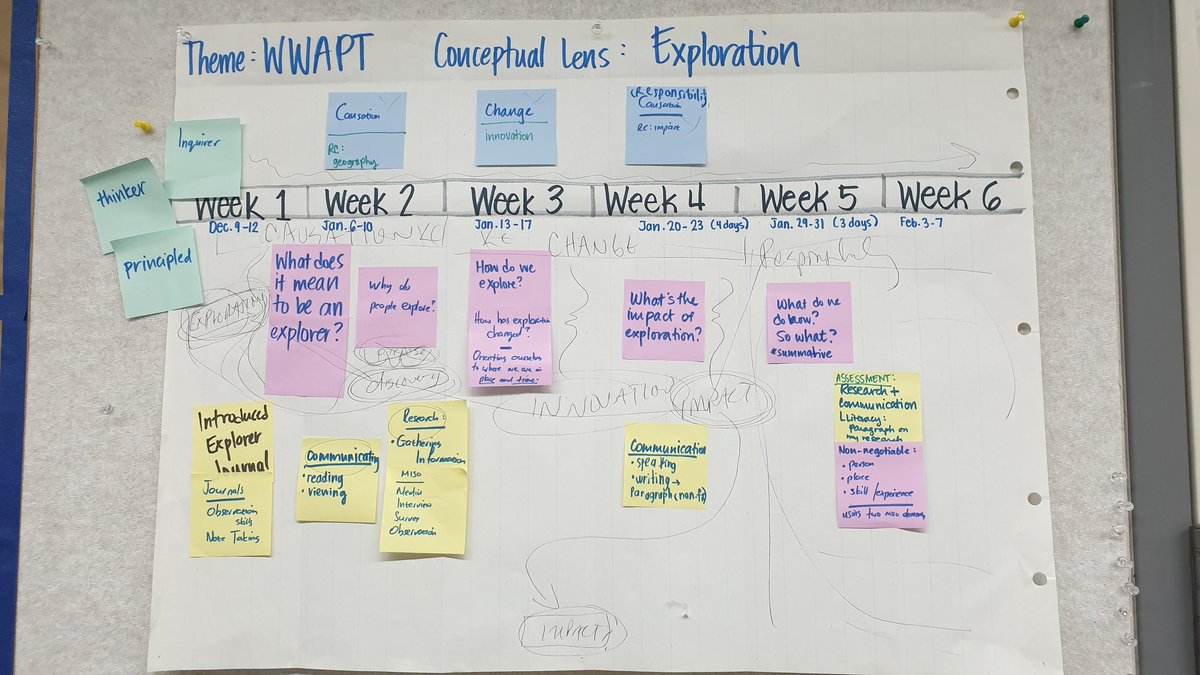 Theme: WWAPT Conceptual Lens: Exploration
Causation
RC:
geography
Change
innovation
(Responsibility
Causation
RC: impact
Inquirer
thinker
principled
Week 1
Dec. 9-12
Week 2
Jan. 6-10
Week 3
Jan. 13-17
Week 4
Jan. 20-23 (4 days)
Week 5
Jan. 29-31 (3 days)
Week 6
Feb. 3-7
CAUSATION
CHANGE
Responsibility
EXPLORATION
What does
it mean
to be an
explorer?
Why do
people explore?
PURPOSE
discovery
How do we
explore?
How has exploration
changed?
Orienting ourselves
to where we are in
place and time.
What's the
impact of
exploration?
What do we
do know?
So what?
#summative
INNOVATION
IMPACT
Introduced
Explorer
Journal
Journals
Observation
skills
Note Taking
Communicating
• reading
• viewing
Research:
• Gathering
Information
MISO
Media
Interview
Survey
Observation
Communication
• speaking
• writing →
Paragraph
ASSESSMENT:
Research +
Communication
Literacy:
Paragraph on
my research
Non-negotiable:
• person
• place
• skill/experience
using two
IMPACT